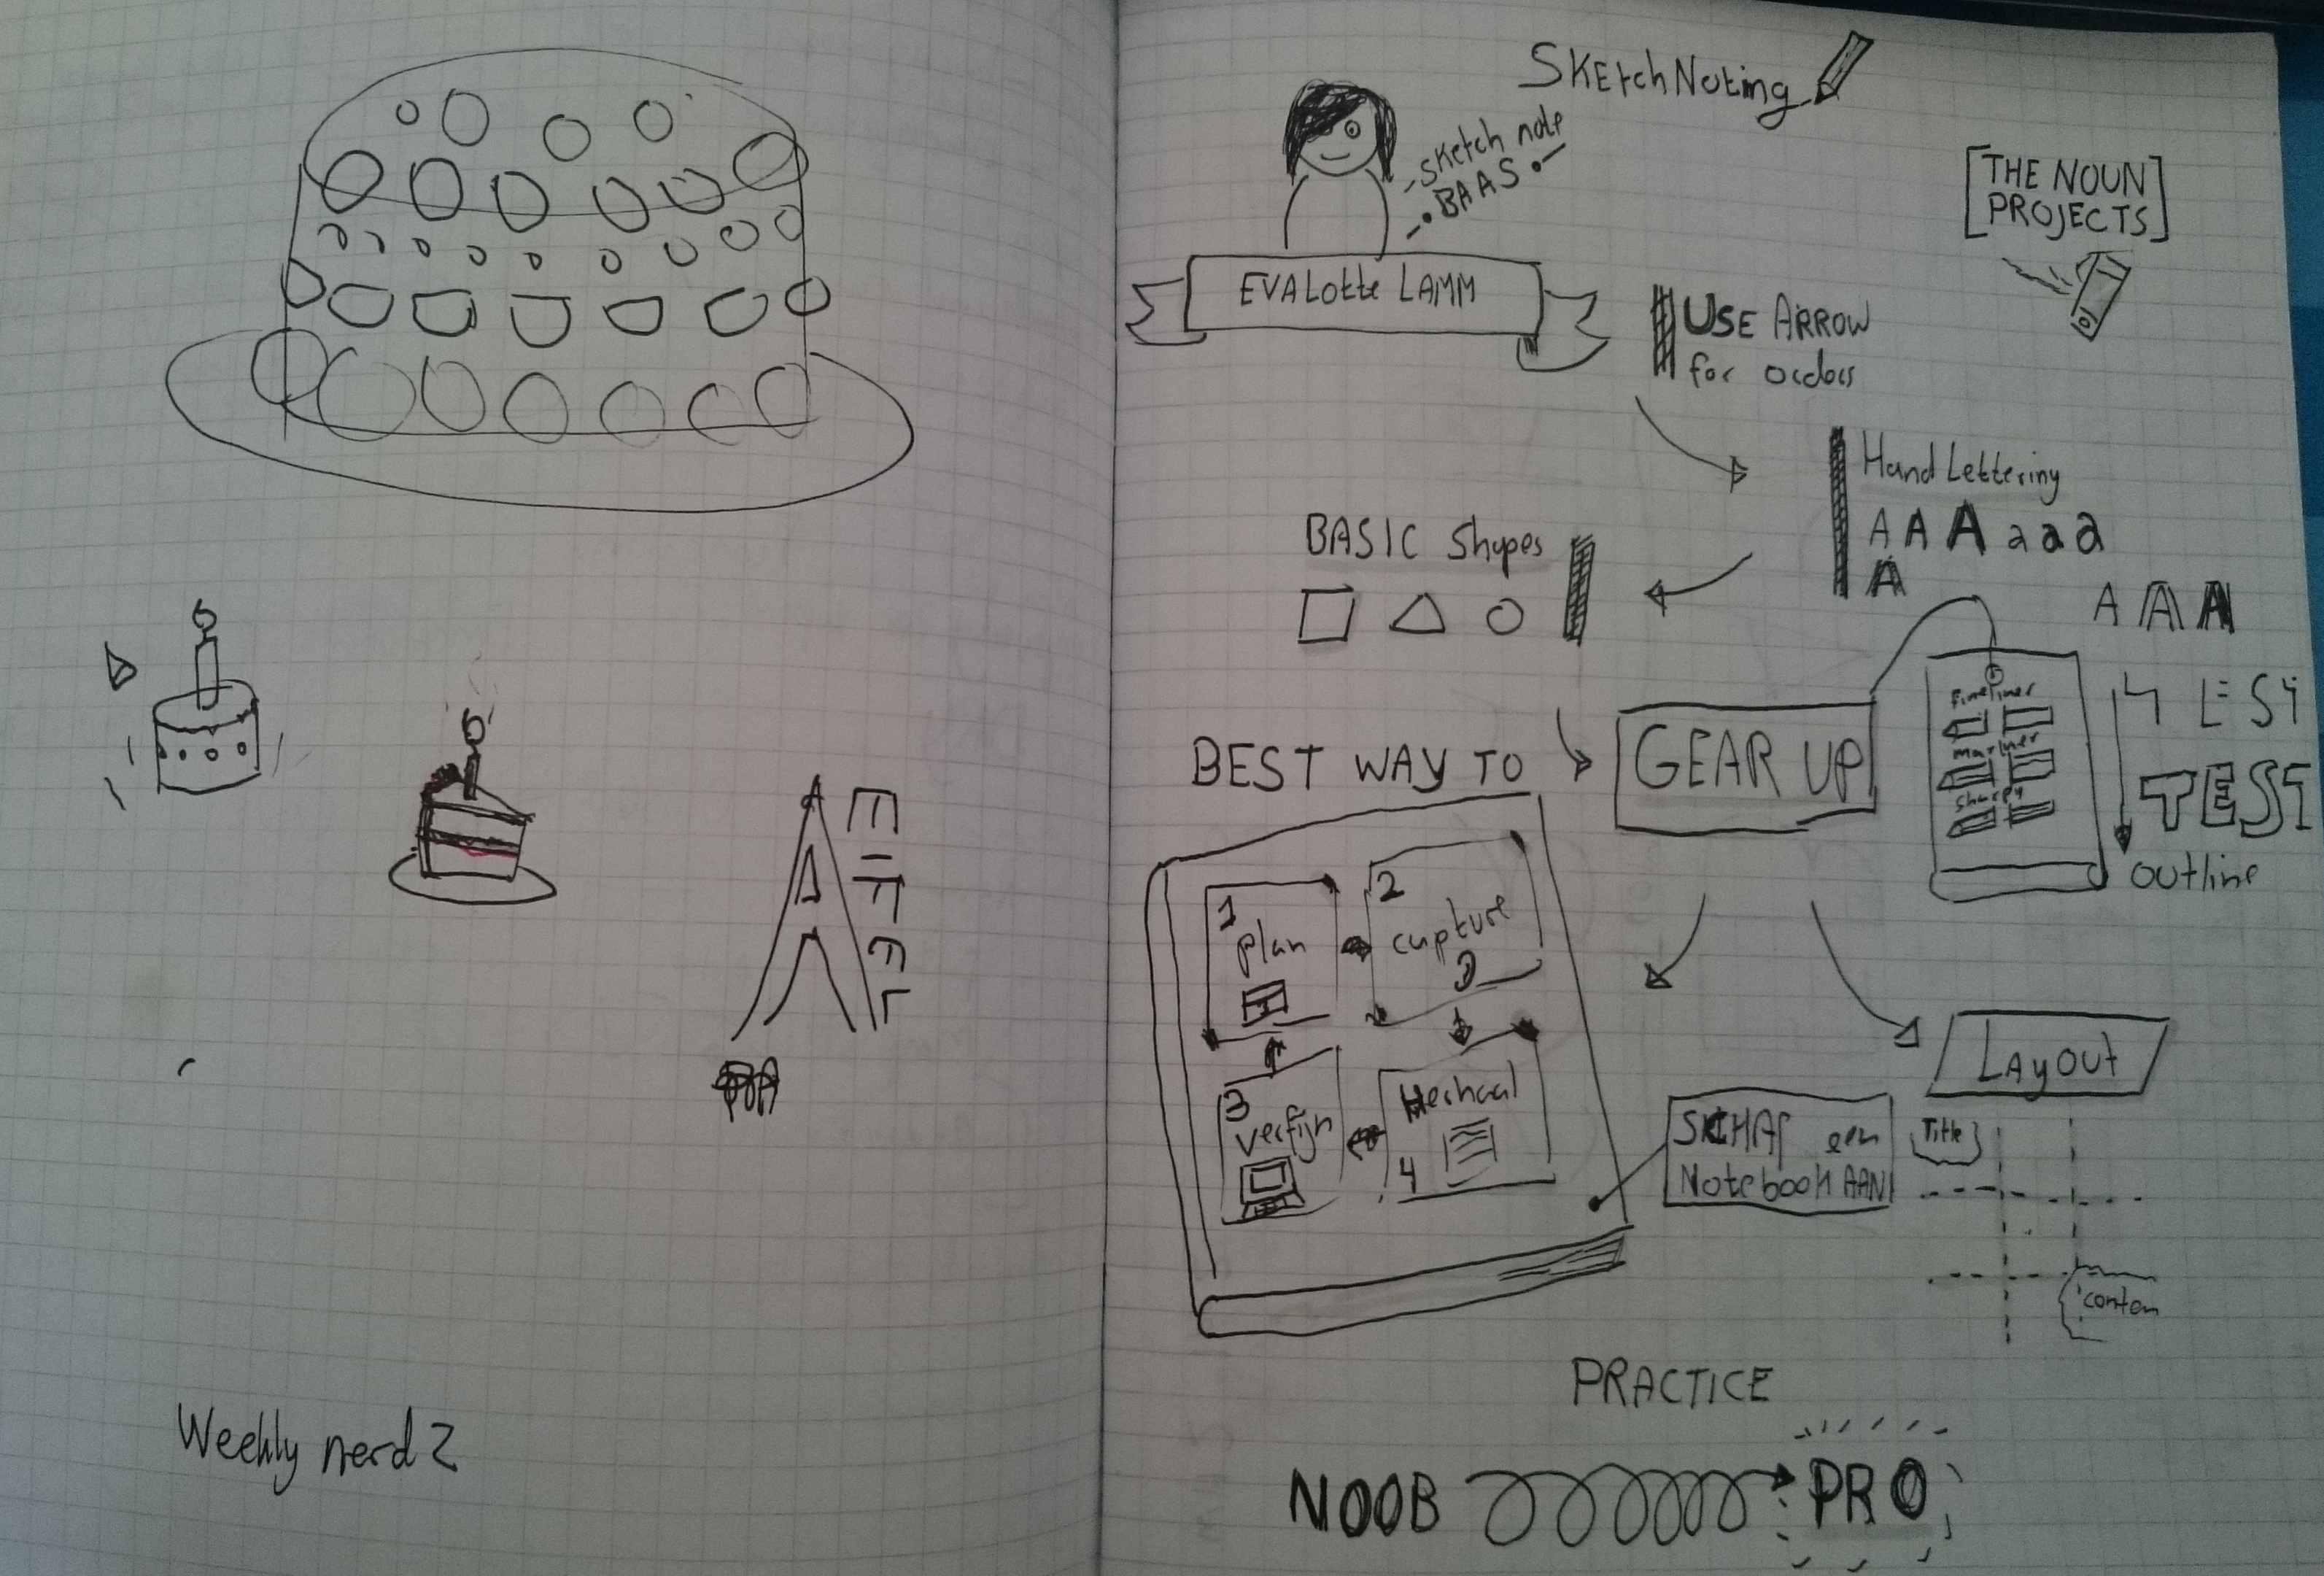 EIFFEL
Weekly nerd 2
SKEtchNoting
sketch note
BAAS
EVALotte LAMM
[THE NOUN
PROJECTS]
USE ARROW
for orders
Hand Lettering
A A A a a a
A
A A A
BASIC Shapes
BEST WAY TO
GEAR UP
Fineliner
marker
sharpy
TEST
outline
1
plan
2
capture
3
verfijn
Herhaal
4
een
Notebook AAN
LAyOut
Title
conten
PRACTICE
NOOB
PRO